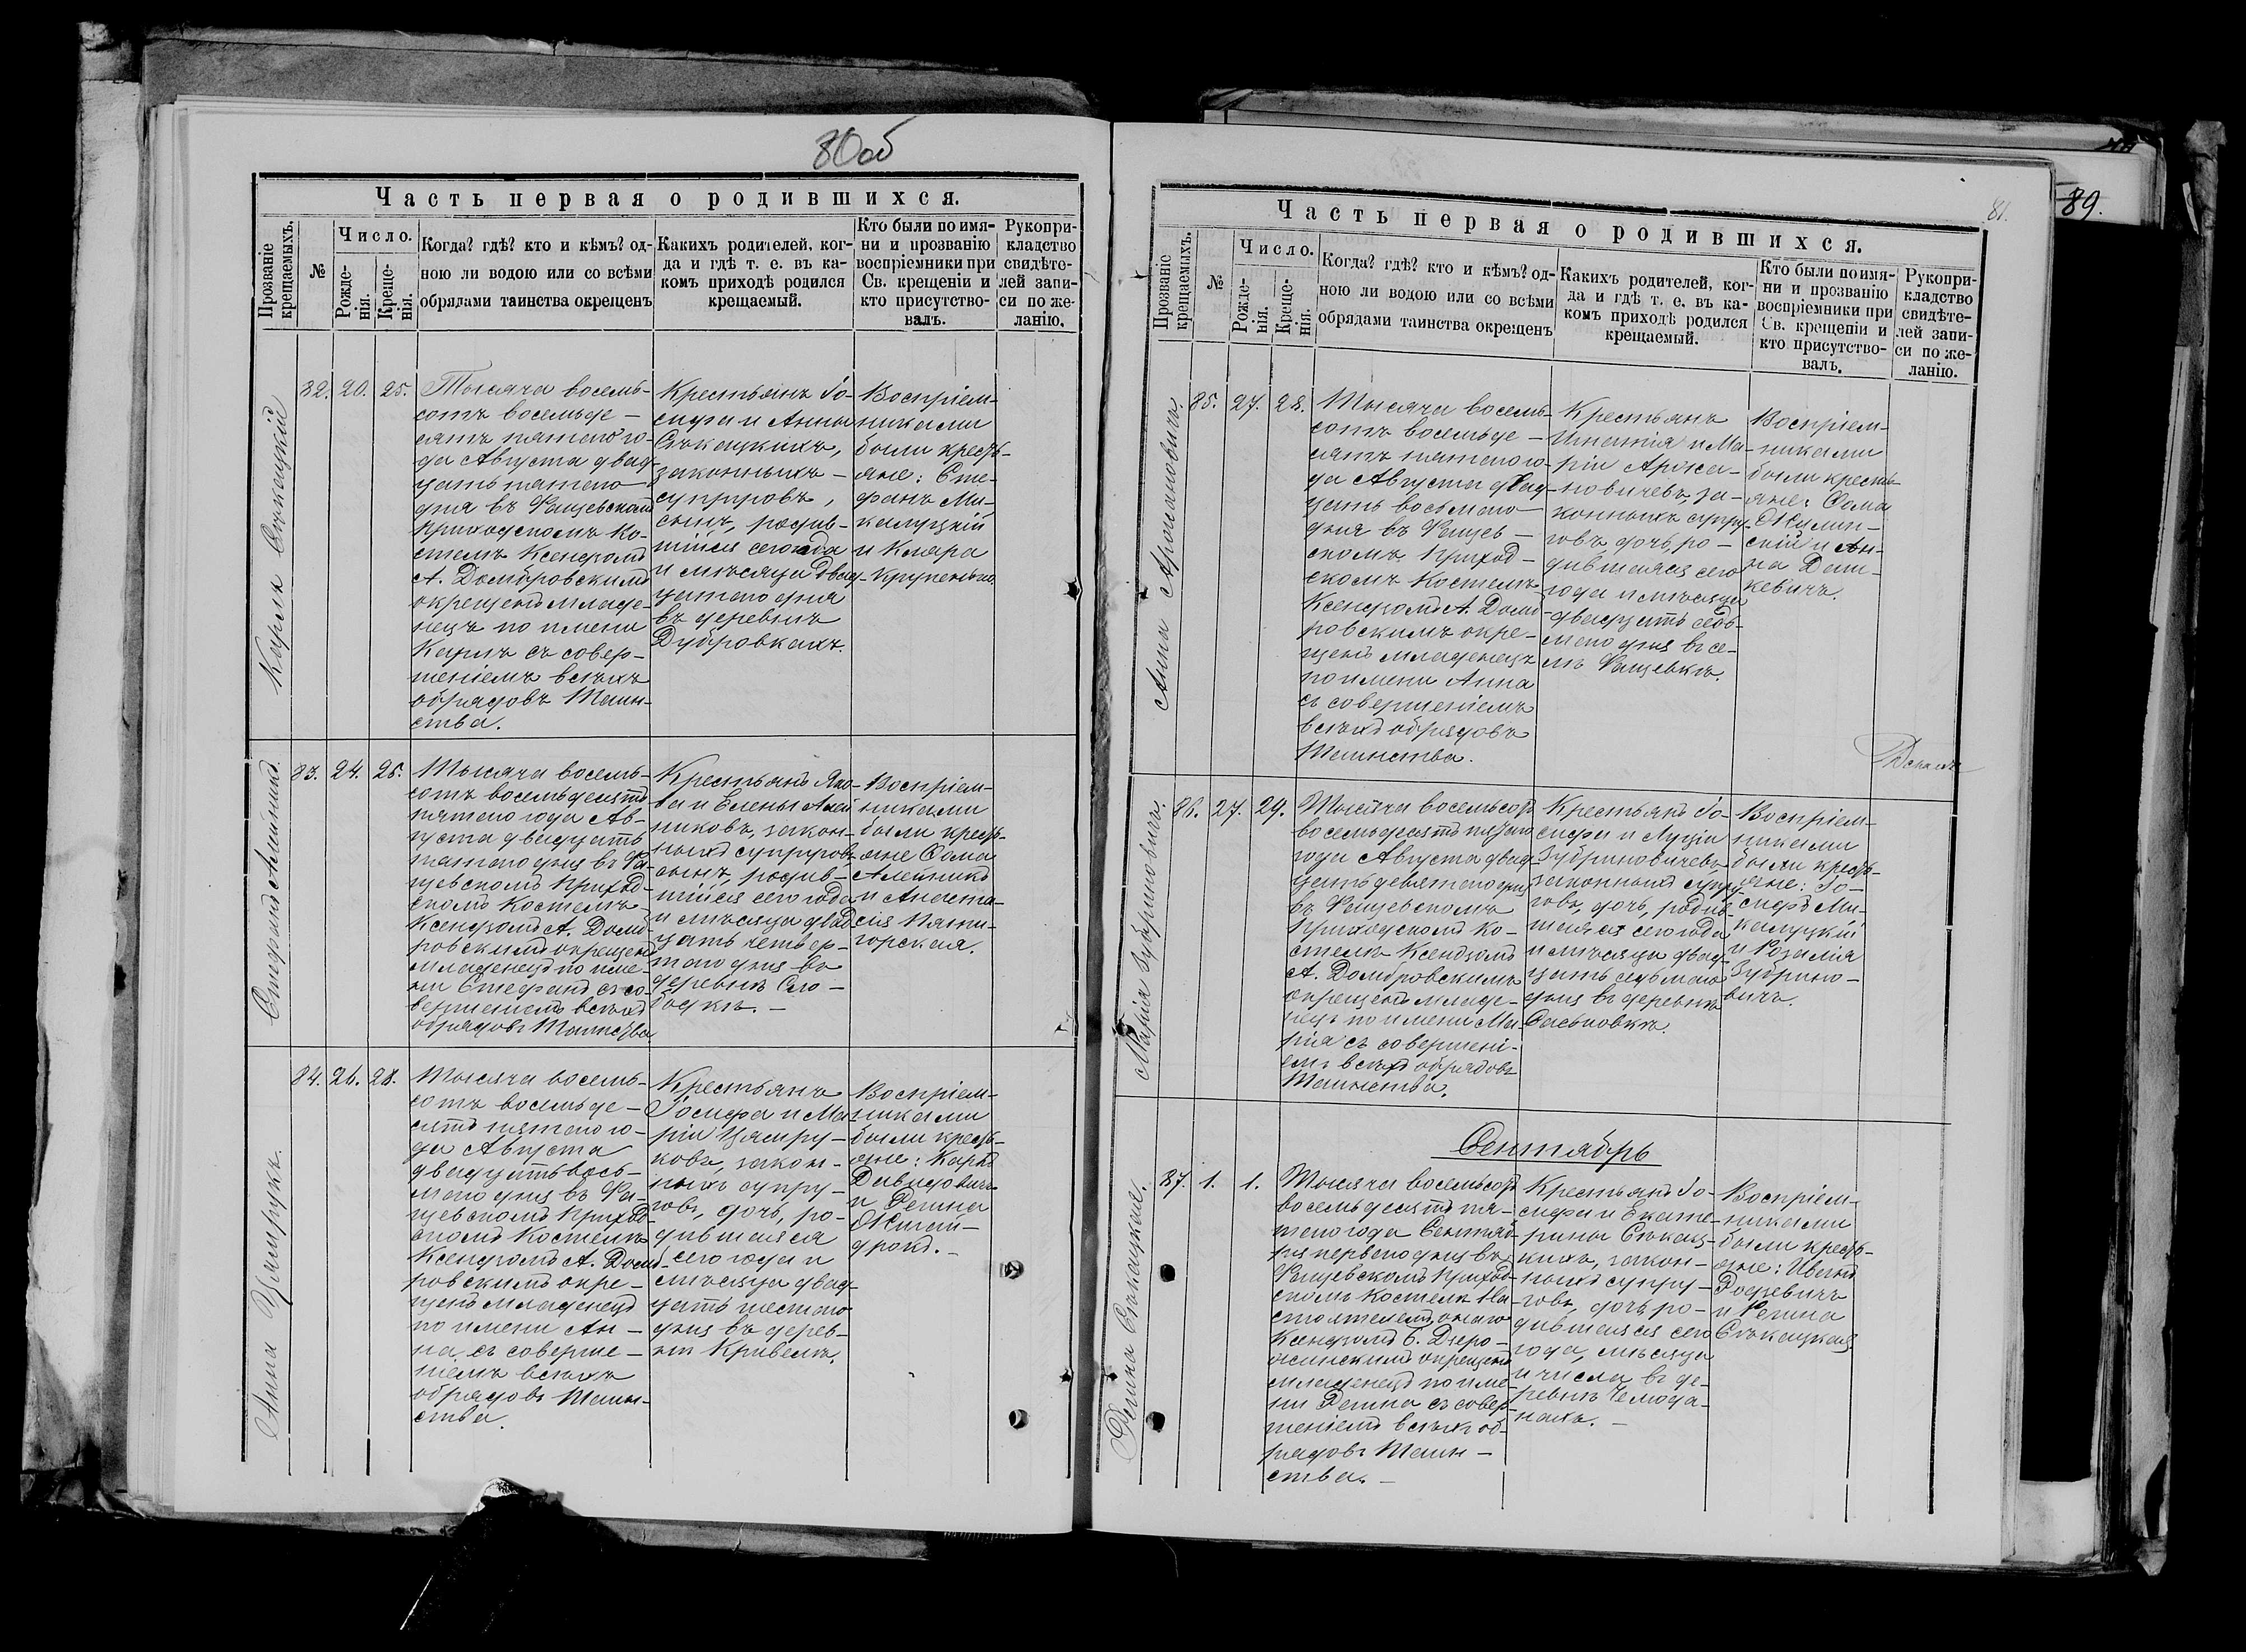 80об
Часть первая о родившихся.
Прозваніе крещаемыхъ.
№
Число.
Рожде-
нія.
Креще-
нія.
Когда? гдѣ? кто и кѣмъ? од-
ною ли водою или со всѣми
обрядами таинства окрещенъ
Какихъ родителей, ког-
да и гдѣ т. е. въ ка-
комъ приходѣ родился
крещаемый.
Кто были по имя-
ни и прозванію
воспріемники при
Св. крещеніи и
кто присутство-
валъ.
Рукопри-
кладство
свидѣте-
лей запи-
си по же-
ланію.
Карлъ Сѣкацкій
82. 20. 25.
Тысяча восемь-
сотъ восемьде-
сятъ пятого го-
да Августа двад-
цать пятого
дня въ Фащевскомъ
приходскомъ ко-
стелѣ Ксендзомъ
А. Домбровскимъ
окрещенъ младе-
нецъ по имени
Карлъ съ совер-
шеніемъ всѣхъ
обрядовъ Таин-
ства.
Крестьянъ Іо-
сифа и Анны
Сѣкацкихъ,
законныхъ
супруговъ,
сынъ, родив-
шійся сего года
и мѣсяца двад-
цатого дня
въ деревнѣ
Дубровкахъ.
Воспріем-
никами
были кресть-
яне: Сте-
фанъ Ми-
калуцкій
и Клара
Стефанъ Алейникъ.
83. 24. 25.
Тысяча восемь-
сотъ восемьдесятъ
пятого года Ав-
густа двадцать
пятого дня въ Фа-
щевскомъ Приход-
скомъ Костелѣ
Ксендзомъ А. Домб-
ровскимъ окрещенъ
младенецъ по име-
ни Стефанъ съ со-
вершеніемъ всѣхъ
обрядовъ Таинства
Крестьянъ Яко-
ва и Елены Алей-
никовъ, закон-
ныхъ супруговъ
сынъ, родив-
шійся сего года
и мѣсяца двад-
цать четвер-
того дня въ
деревнѣ Сло-
бодкѣ.
Воспріем-
никами
были кресть-
яне Ѳома
Алейникъ
и Анаста-
сія Пятни-
горская.
Анна Цямрукъ.
84. 26. 28.
Тысяча восемь-
сотъ восемьде-
сятъ пятого го-
да Августа
двадцать вось-
мого дня въ Фа-
щевскомъ Приход-
скомъ Костелѣ
Ксендзомъ А. Домб-
ровскимъ окре-
щенъ младенецъ
по имени Ан-
на съ соверше-
ніемъ всѣхъ
обрядовъ Таин-
ства.
Крестьянъ
Іосифа и Ма-
ріи Цямру-
ковъ, закон-
ныхъ супру-
говъ, дочь, ро-
дившаяся
сего года и
мѣсяца двад-
цать шестого
дня въ дерев-
нѣ Кривелѣ.
Воспріем-
никами
были кресть-
яне: Карлъ
Давидовичъ
и Регина
81.
89.
Часть первая о родившихся.
Прозваніе крещаемыхъ.
№
Число.
Рожде-
нія.
Креще-
нія.
Когда? гдѣ? кто и кѣмъ? од-
ною ли водою или со всѣми
обрядами таинства окрещенъ
Какихъ родителей, ког-
да и гдѣ т. е. въ ка-
комъ приходѣ родился
крещаемый.
Кто были по имя-
ни и прозванію
воспріемники при
Св. крещеніи и
кто присутство-
валъ.
Рукопри-
кладство
свидѣте-
лей запи-
си по же-
ланію.
Анна
85. 27. 28.
Тысяча восемь-
сотъ восемьде-
сятъ пятого го-
да Августа двад-
цать восьмого
дня въ Фащев-
скомъ Приход-
скомъ Костелѣ
Ксендзомъ А. Домб-
ровскимъ окре-
щенъ младенецъ
по имени Анна
съ совершеніемъ
всѣхъ обрядовъ
Таинства.
Крестьянъ
Игнатія и Ма-
ріи
за-
конныхъ супру-
говъ дочь, ро-
дившаяся сего
года и мѣсяца
двадцать седь-
мого дня въ се-
лѣ Фащевкѣ.
Воспріем-
никами
были кресть-
яне: Ѳома
Жулин-
скій и Ан-
на Даш-
кевичъ.
Марія Зубриновичъ.
86. 27. 29.
Тысяча восемьсотъ
восемьдесятъ пятого
года Августа двад-
цать девятого дня
въ Фащевскомъ
Приходскомъ Ко-
стелѣ Ксендзомъ
А. Домбровскимъ
окрещенъ младе-
нецъ по имени Ма-
рія съ совершені-
емъ всѣхъ обрядовъ
Таинства.
Крестьянъ Іо-
сифа и Луціи
Зубриновичевъ
законныхъ супру-
говъ, дочь, родив-
шаяся сего года
и мѣсяца двад-
цать седьмого
дня въ деревнѣ
Каськовкѣ.
Воспріем-
никами
были кресть-
яне: Іо-
сифъ Ми-
калуцкій
и Розалія
Зубрино-
вичъ.
Сентябрь
Регина Сѣкацкая.
87. 1. 1.
Тысяча восемьсотъ
восемьдесятъ пя-
того года Сентяб-
ря первого дня въ
Фащевскомъ Приход-
скомъ Костелѣ На-
стоятелемъ онаго
Ксендзомъ Б. Дзеро-
жинскимъ окрещенъ
младенецъ по име-
ни Регина съ совер-
шеніемъ всѣхъ об-
рядовъ Таин-
ства.
Крестьянъ Іо-
сифа и Екате-
рины Сѣкац-
кихъ, закон-
ныхъ супру-
говъ, дочь ро-
дившаяся сего
года, мѣсяца
и числа въ де-
ревнѣ Чемода-
нахъ.
Воспріем-
никами
были кресть-
яне: Иванъ
Родзевичъ
и Регина
Сѣкацкая